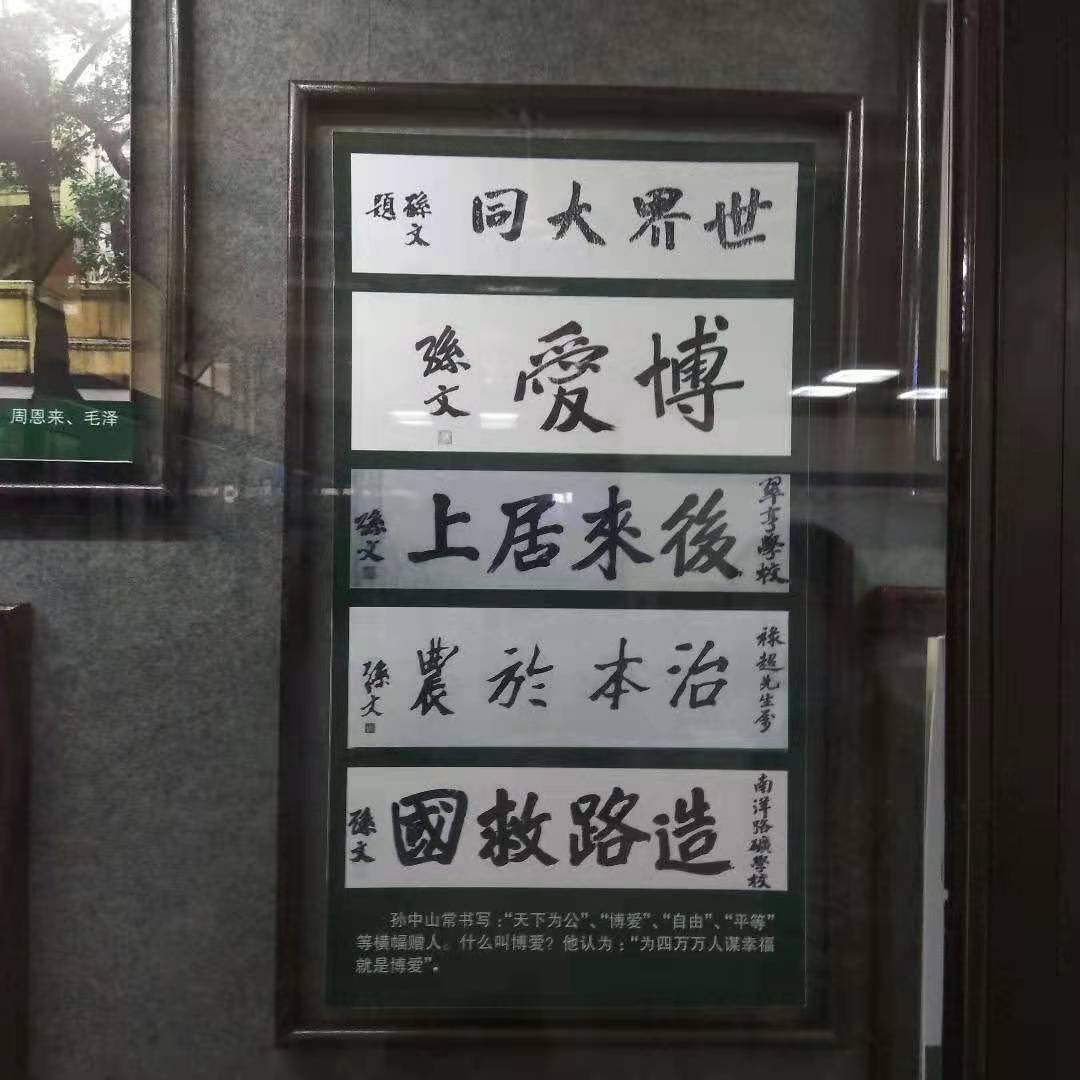 世界大同
孫文題
博愛
孫文
翠亨學校
後來居上
孫文
祿超先生屬
治本於農
孫文
南洋路礦學校
造路救國
孫文
孙中山常书写：“天下为公”、“博爱”、“自由”、“平等”
等横幅赠人。什么叫博爱？他认为：“为四万万人谋幸福
就是博爱”。
周恩来、毛泽